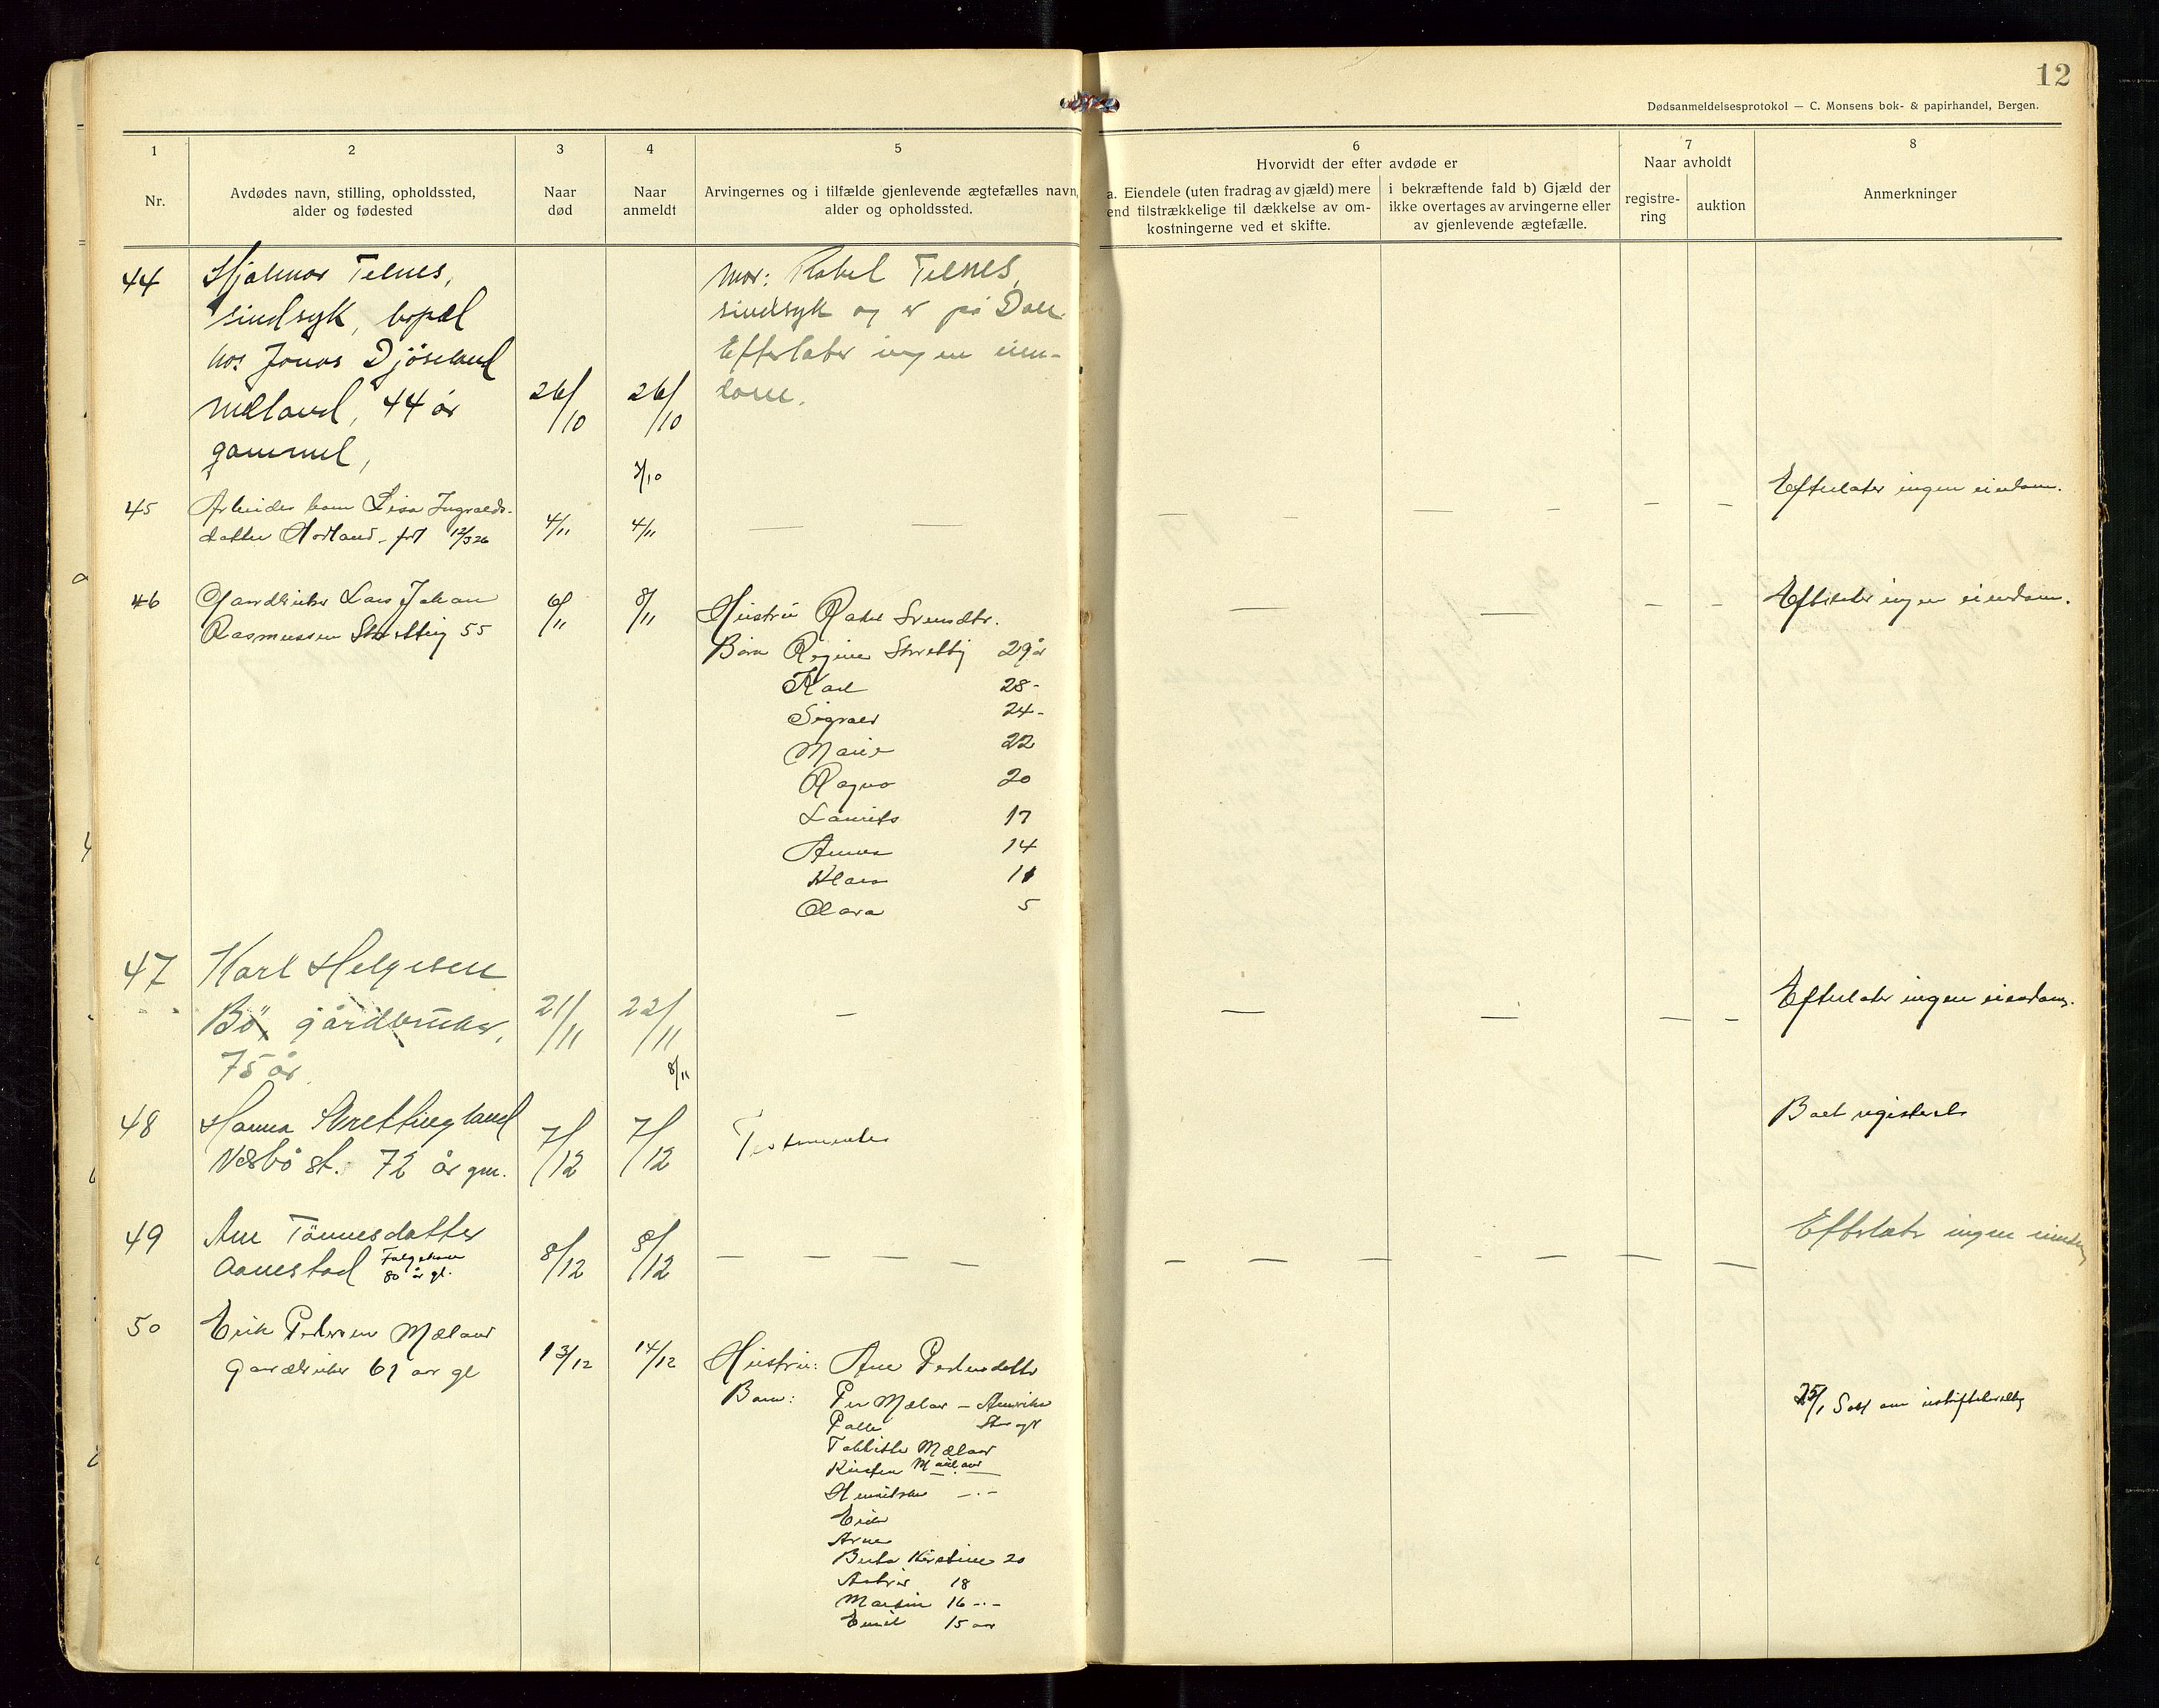 12
Dødsanmeldelsesprotokol — C. Monsens bok- & papirhandel, Bergen.
1 2 3 4 5 6 7 8
Nr.
Avdødes navn, stilling, opholdssted,
alder og fødested
Naar
død
Naar
anmeldt
Arvingernes og i tilfælde gjenlevende ægtefælles navn,
alder og opholdssted.
Hvorvidt der efter avdøde er
a. Eiendele (uten fradrag av gjæld) mere
end tilstrækkelige til dækkelse av om-
kostningerne ved et skifte.
i bekræftende fald b) Gjæld der
ikke overtages av arvingerne eller
av gjenlevende ægtefælle.
Naar avholdt
registre-
ring
auktion
Anmerkninger
44
Hjalmar Telnes,
sindsyk, bopæl
hos Jonas Djöseland
Mæland, 44 år
gammel,
26/10
26/10
Mor: Rakel Telnes,
sindsyk og er på Dale
Efterlater ingen eien-
dom.
45
datter Hodland - født
4/11
4/11
— —
Efterlater ingen eiendom.
46
Gaardbruker Lars Johan
Rasmussen 55
6/11
8/11
Hustru Rakel Svendsdtr.
Børn Regine 29 år
Karl 28 -
Sigvald 24 -
Marie 22
Ragna 20
Laurits 17
Anna 14
Klara 11
Olava 5
Efterlater ingen eiendom.
47
Karl Helgesen
Bö, gårdbruker,
75 år
21/11
22/11
8/11
—
Efterlater ingen eiendom.
48
Hanna Skrettingland
Nesbö st. 72 år gm.
7/12
7/12
Testamenter
Boet registrert
49
Ane Tönnesdatter
Aanestad
80 år gl.
8/12
8/12
— — — —
Efterlater ingen eiendom
50
Erik Pedersen Mæland
Gaardbruker 61 aar gl
13/12
14/12
Hustru: Ane Pedersdatter
Barn: Per Mæland — Amerika
Palle
Tobbine Mæland
Kirsten Mæland
Henrikke —"—
Erik
Arne
Berta Kirstine 20
Astrid 18
Martin 16 -"-
Emil 15 aar
25/1 Søkt om uskiftebevilling